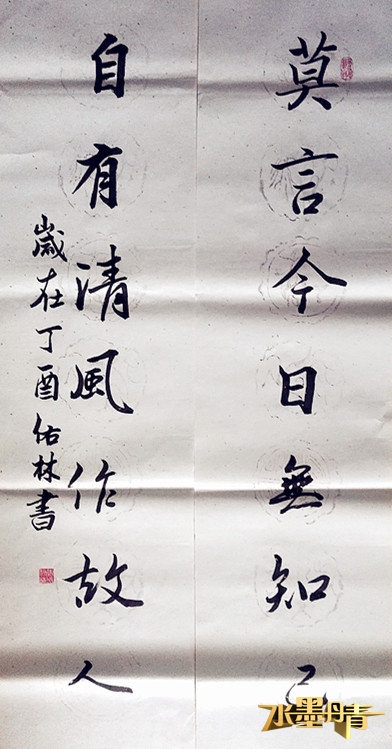 莫言今日無知己
自有清風作故人
歲在丁酉佑林書
水墨丹青